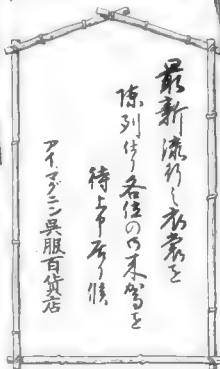 最新流行之衣裳を
陳列仕り各位の御来駕を
待上申居り候
アイ、マグニン呉服百貨店